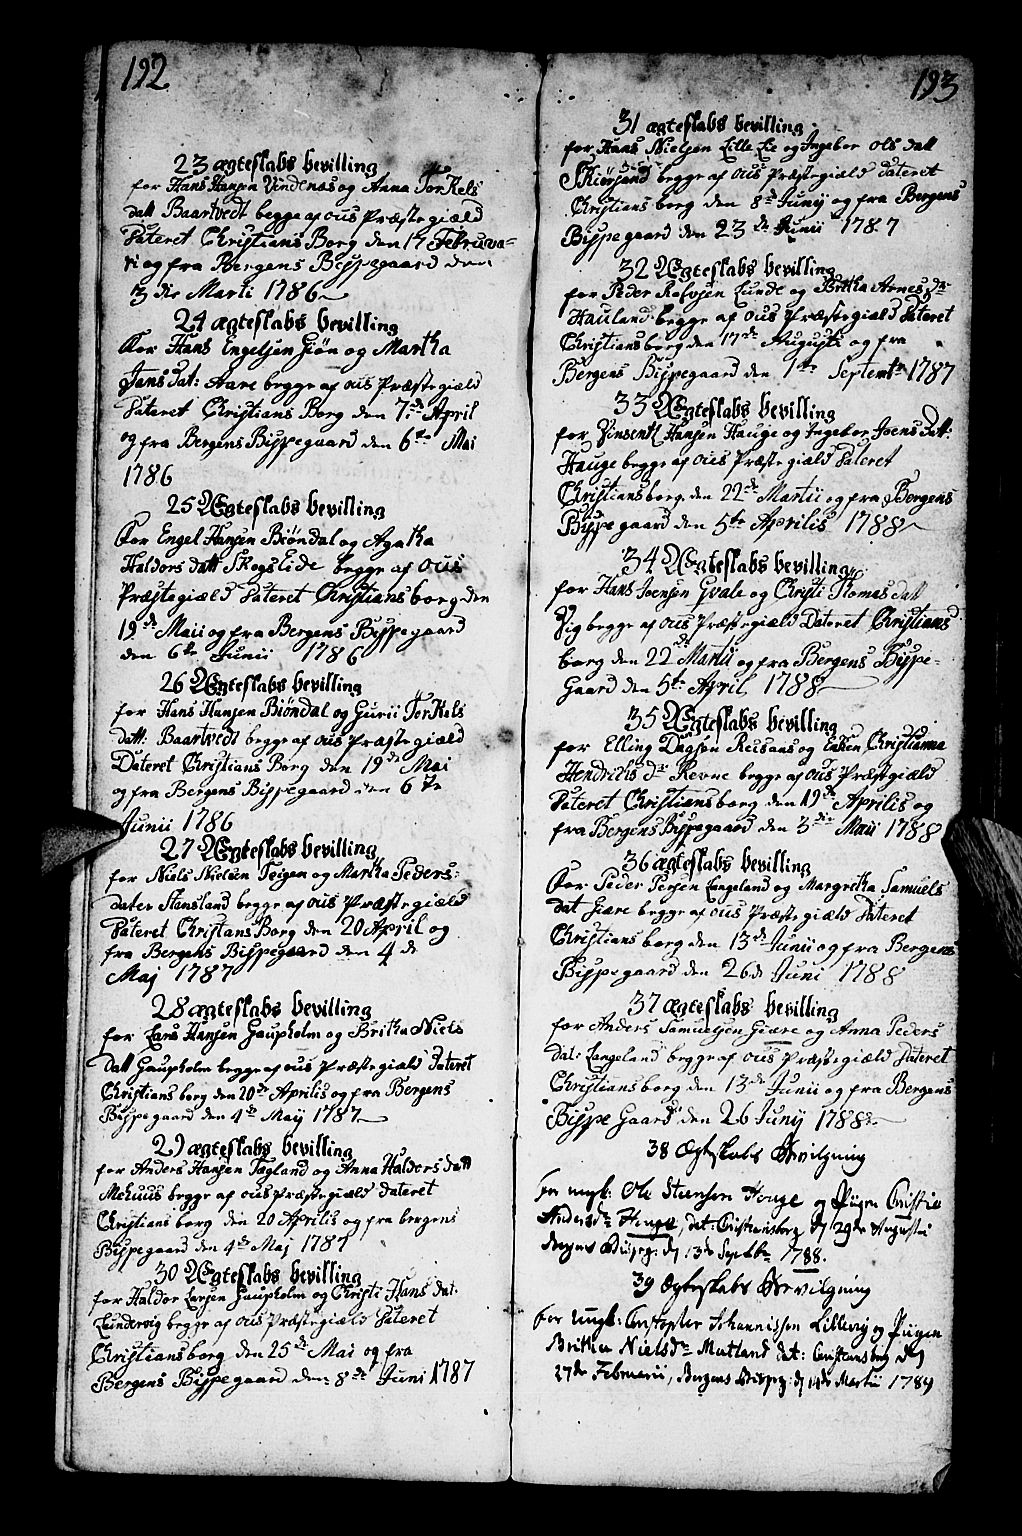 192
23 ægteskabs bevilling
for Hans Hansen Vindenæs og Anna Torkels
datt Baartvedt begge af ous Præstegiæld
Dateret Christians Borg den 17 Februva-
ri og fra Bergens Bispegaard den
3 die Marti 1786
24 ægteskabs bevilling
For Hans Engelsen Giøn og Martha
Jens Dat: Aare begge af ous Præstegiæld
Dateret Christians Borg den 7de April
og fra Bergens Bispegaard den 6te Mai
1786
25 Ægteskabs bevilling
For Engel Hansen Biøndal og Agatha
Haldors datt Skogslide begge af ous
Præstegiæld Dateret Christiansborg den
19de Maii og fra Bergens Bispegaard
den 6te Junii 1786
26 Ægteskabs bevilling
for Hans Hansen Biøndal og Gurii Torkels
datt: Baartvedt begge af ous Præstegiæld
Dateret Christians Borg den 19de Mai
og fra Bergens Bispegaard den 6te
Junii 1786
27 Ægteskabs bevilling
for Niels Nielsen Teigen og Martha Peders:
dater Hansland begge af ous Præstegiæld
Dateret Christans Borg den 20 April og
fra Bergens Bispegaard den 4de
Maj 1787
28 ægteskabs bevilling
for Lars Hansen Gaupholm og Britha Niels
datt Gaupholm begge af ous Præstegiæld Dateret
Christians borg den 20de Aprilis og fra Bergens
Bispegaard den 4de Maÿ 1787
29 ægteskabs bevilling
for Anders Hansen Tægland og Anna Haldors datt
Mehuus begge af ous Præstegiæld dateret
Christians borg den 20 Aprilis og fra bergens
Bispegaard den 4de Maj 1787
30 Ægteskabs bevilling
for Haldor Larsen Gaupholm og Christi Hans dat.
Lundervig begge af ous Præstegiæld Dateret
Christiansborg den 25de Mai og fra
Bergens Bispegaard den 8de Juni 1787
193
31 ægteskabs bevilling
for Hans Nielsen Lille Lie og Ingebor Ols datt
Skiørsand begge af ous Præstegiæld Dateret
Christians borg den 8de Junij og fra Bergens
Bispegaard den 23de Junii 1787
32 Ægteskabs bevilling
for Peder Rolvsen Lunde og Britha Arnes Dr
Hauland begge af ous Præstegiæld Dateret
Christiansborg den 17de Augusti og fra
Bergens Bispegaard den 1te Septemb: 1787
33 Ægteskabs bevilling
for Vinsentz Hansen Hauge og Ingebor Joens Dat:
Hauge begge af ous Præstegiæld Dateret
Christiansborg den 22de Martii og fra Bergens
Bispegaard den 5te Aprilis 1788
34 Ægteskabs bevilling
for Hans Joensen Qvale og Christi Thomas dat
Vig begge af ous Præstegiæld Dateret Christians
borg den 22de Martii og fra Bergens Bispe-
Gaard den 5te April 1788
35 Ægteskabs bevilling
for Elling Dagsøn Reisans og Enken Christianna
Hendrichs dr Revne begge af ous Præstegiæld
Dateret Christiansborg den 19de Aprilis og
fra Bergens Bispegaard den 3die Maii 1788
36 ægteskabs bevilling
For Peder Persen Langeland og Margretha Samuels
dat Giære begge af ous Præstegiæld Dateret
Christians borg den 13de Junii og fra Bergens
Bispegaard den 26de Juni 1788
37 ægteskabs bevilling
for Anders Samuelsen Giære og Anna Peders
dat: Langeland begge af ous Præstegiæld Dateret
Christiansborg den 13de Junii og fra Bergens
Bispe Gaard den 26 Junÿ 1788
38 Ægteskabs Bevilgning
for ungk: Ole Steensen Houge og Pigen Christie
Andersdr Houge, dat: Christiansborg d 29de Augusti
Bergens Bispeg: d 13de Septbr 1788.
39 Ægteskabs Bevilgning
for Ungk: Christopher Johannissen Lillevig og Pigen
Brithe Nielsdr Matland dat: Christiansborg den
27de Februarii, Bergens Bispeg: d 14de Martii 1789